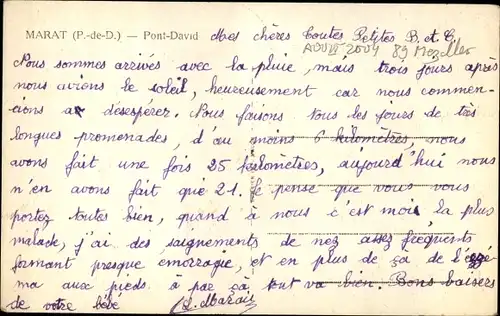 MARAT (P.-de-D.) — Pont-David
Mes chères toutes Petites B. et C.
AOUT 2004 89
Nous sommes arrivés avec la pluie, mais trois jours après
nous avions le soleil, heureusement car nous commen-
cions a désespérez. Nous faisons tous les jours de très
longues promenades, d'au moins 6 kilomètres, nous
avons fait une fois 25 kilomètres, aujourd'hui nous
n'en avons fait que 21. Je pense que vous vous
portez toutes bien, quand à nous c'est moi, la plus
malade, j'ai des saignements de nez assez fréquents
formant presque emorragie, et en plus de ça de l'ecze
ma aux pieds à par ça tout va bien. Bons baisers
de votre bébé